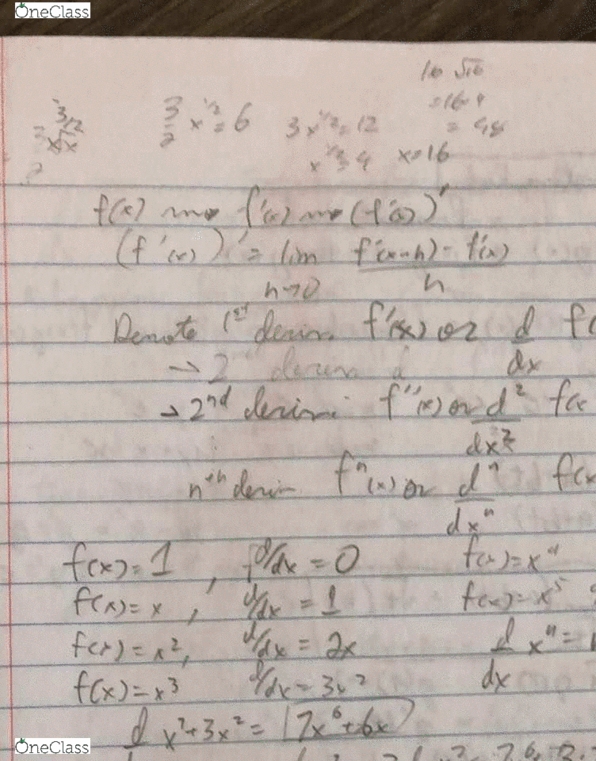 OneClass
16 √16
3/2 x^1/2 = 6 3x^1/2 = 12 = 16·4
x^1/2 = 4 x=16
f(x) f'(x) (f'(x))'
(f'(x))' = lim f'(x-h) - f'(x)
h→0 h
Denote 1st deriv. f'(x) or d f(
dx
→ 2
→ 2nd deriv: f''(x) or d² f(x
dx²
nth deriv f^n(x) or d^n f(x
dx^n
f(x)=1, d/dx = 0 f(x)=x⁴
f(x)=x, d/dx = 1 f(x)=x⁵
f(x)=x², d/dx = 2x d x^n =
f(x)=x³ d/dx = 3x² dx
d x⁷+3x² = 7x⁶+6x
OneClass